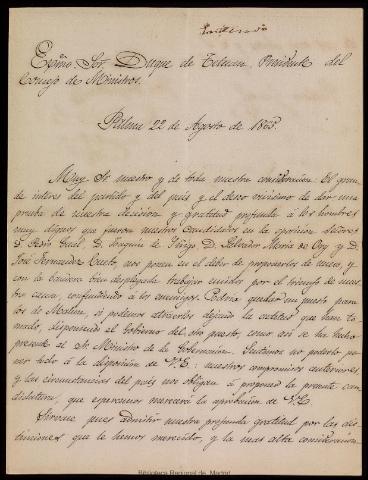 Exmo. Sor. Duque de Tetuan Presidente del
Consejo de Ministros.
Palma 22 de Agosto de 1865.
Muy Sr. nuestro y de toda nuestra consideracion. El gran-
de interes del partido y del pais y el deseo vivisimo de dar una
prueba de nuestra decision y gratitud profunda á los hombres
muy dignos que fueron nuestros candidatos en la oposicion
D. D. Joaquin de D. Salvador Maria de Ory y D.
José Fernandez Cueto, nos ponen en el deber de proponerlos de nuevo, y
con la bandera bien desplegada trabajar unidos por el triunfo de nues-
tra causa, confundiendo á los enemigos. Podria quedar un puesto para
los de Mahon, si podemos atraerlos dejando la actitud que han to-
mado, disponiendo el Gobierno del otro puesto, como asi se ha hecho
presente al Sr. Ministro de la Gobernacion. Sentimos no poderlo po-
ner todo á la disposicion de V. E.: nuestros compromisos anteriores
y las circunstancias del pais nos obligan á proponer la presente can-
didatura, que esperamos merecerá la aprobacion de V. E.
Sirvase pues admitir nuestra profunda gratitud por las dis-
tinciones que le hemos merecido, y la mas alta consideracion
Biblioteca Nacional de Madrid